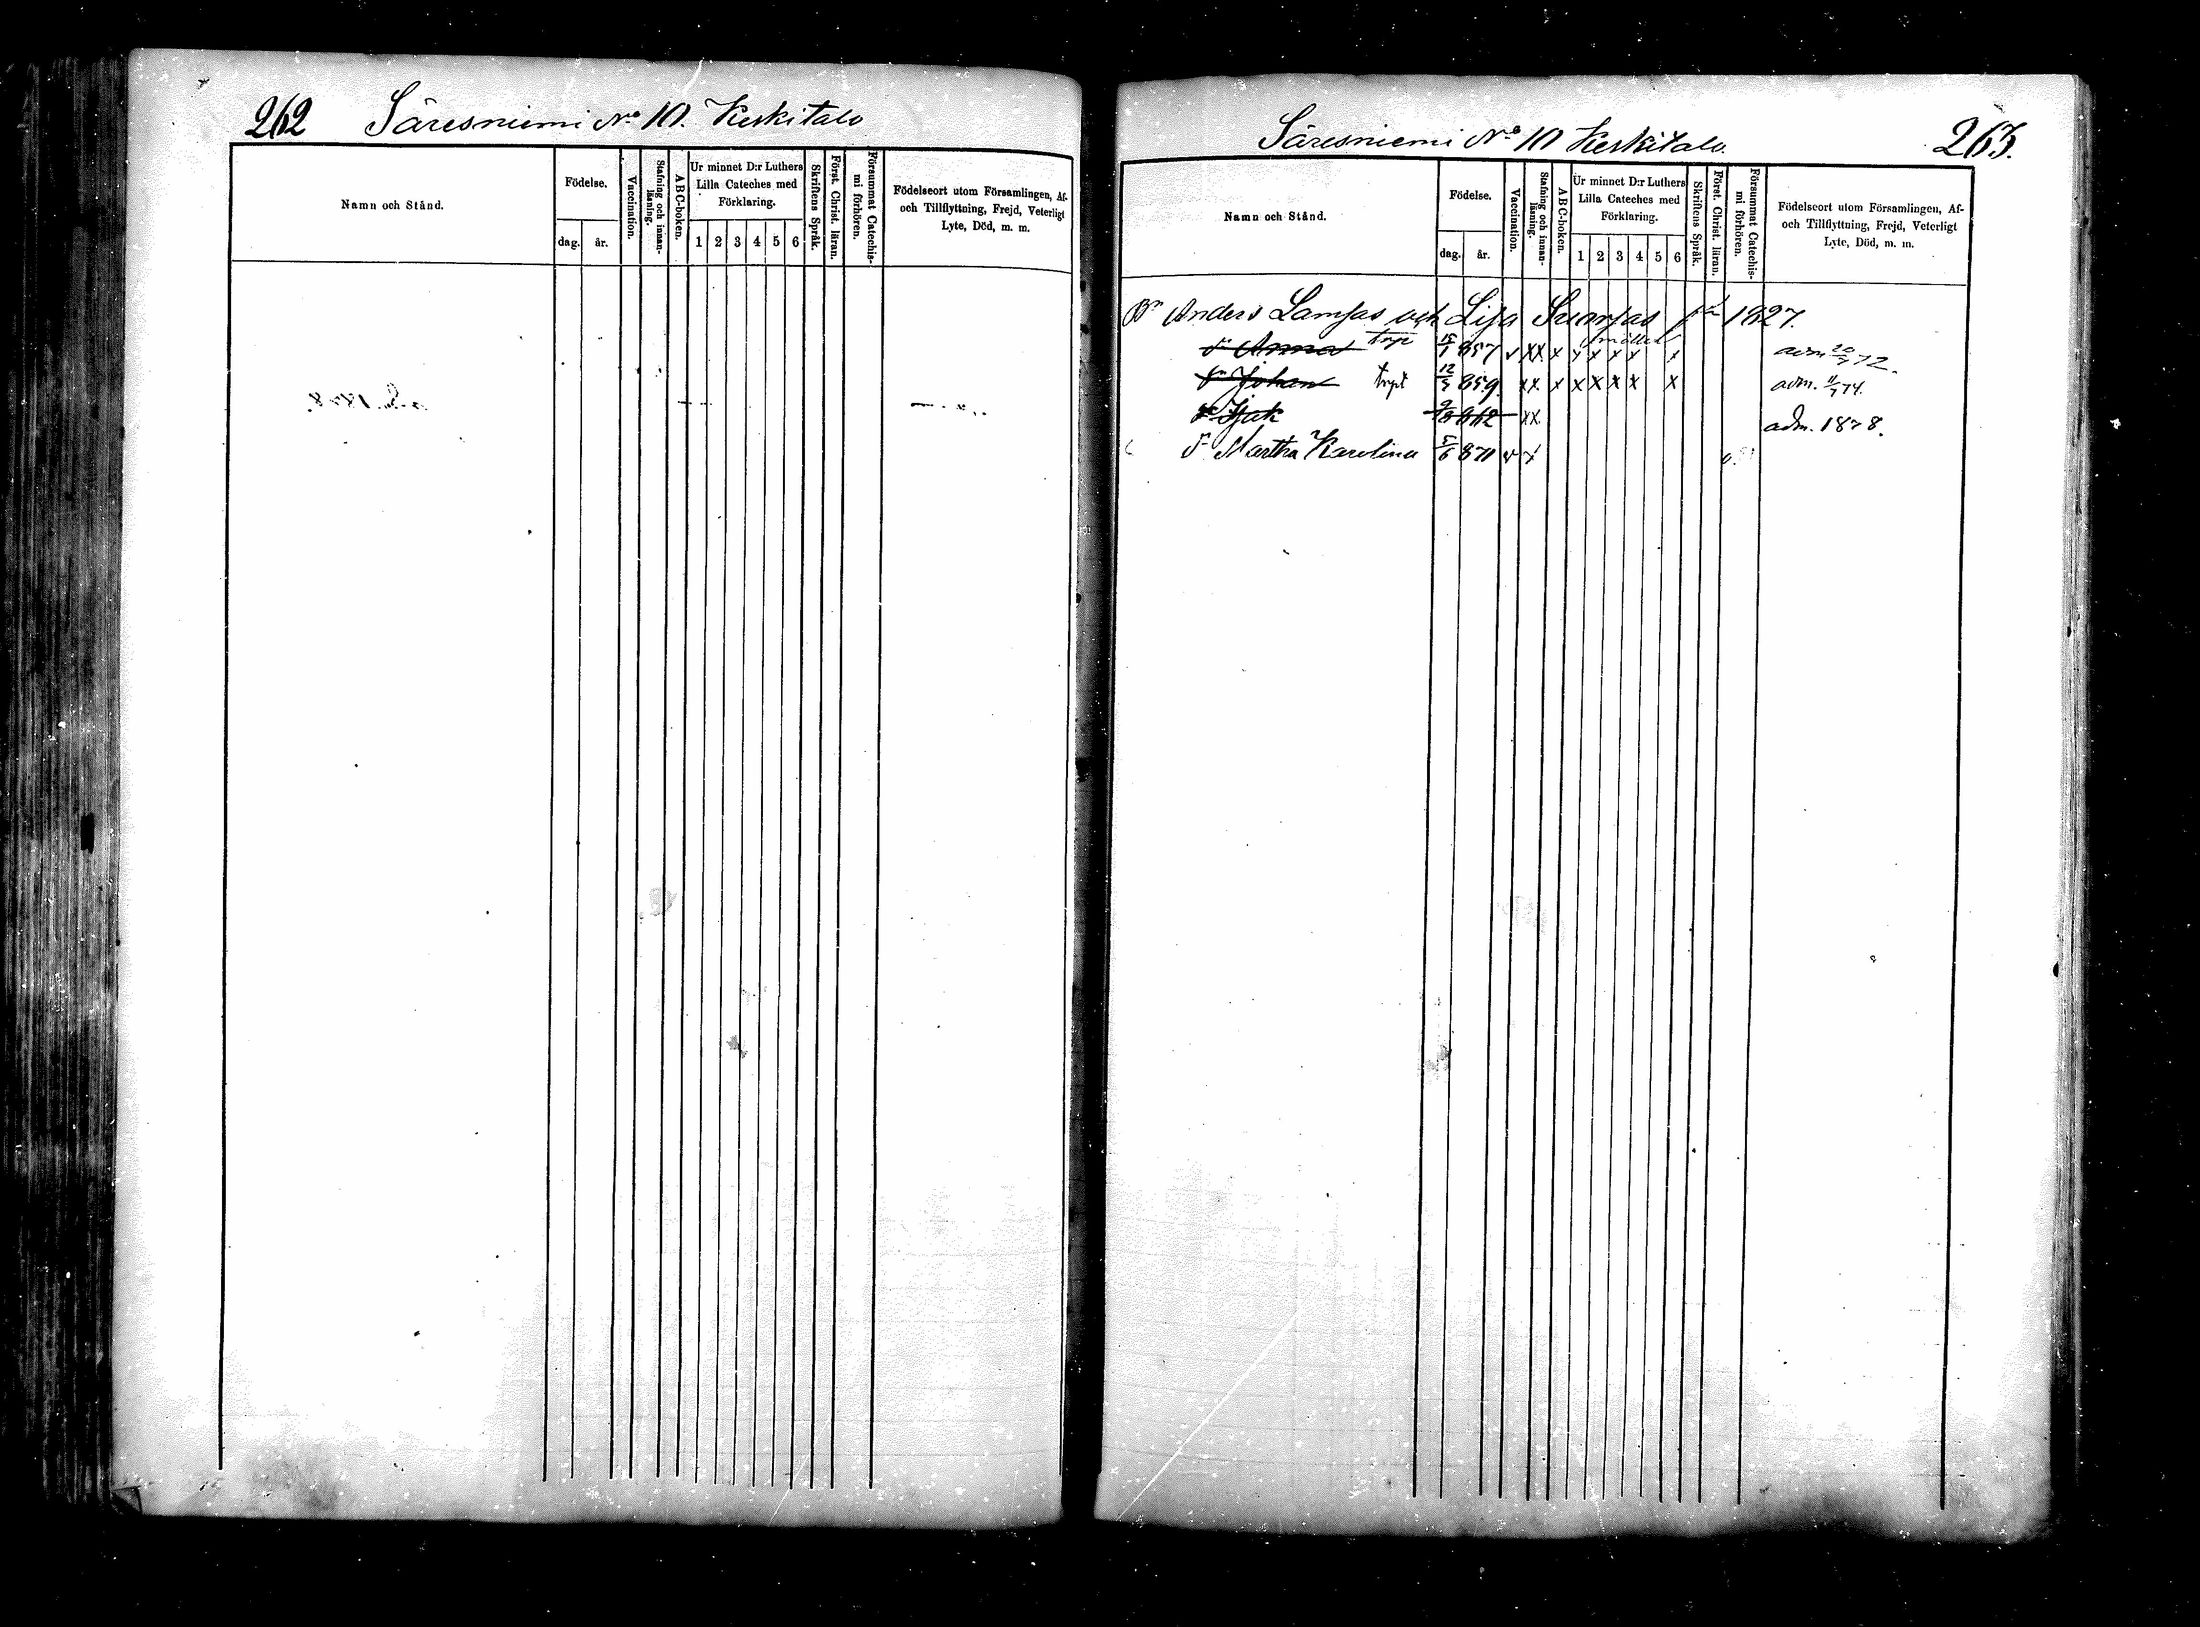 262 Säresniemi No 10. Keskitalo
Namn och Stånd.
Födelse.
dag. år.
Vaccination.
Stafning och innanläsning.
ABC-boken.
Ur minnet D:r Luthers
Lilla Cateches med
Förklaring.
1 2 3 4 5 6
Skriftens Språk.
Först. Christ. läran.
Försummat Catechismi förhören.
Födelseort utom Församlingen, Af-
och Tillflyttning, Frejd, Veterligt
Lyte, Död, m. m.
Säresniemi No 10 Keskitalo. 263.
Namn och Stånd.
Födelse.
dag. år.
Vaccination.
Stafning och innanläsning.
ABC-boken.
Ur minnet D:r Luthers
Lilla Cateches med
Förklaring.
1 2 3 4 5 6
Skriftens Språk.
Först. Christ. läran.
Försummat Catechismi förhören.
Födelseort utom Församlingen, Af-
och Tillflyttning, Frejd, Veterligt
Lyte, Död, m. m.
Bn Anders Lamsas och Lisa 1827.
dr Anna 857 v xx x x x x x x adm 72.
sn Johan 12/5 859 xx x x x x x x adm. 74.
sn Isak 862 xx adm. 1878.
dr Martha Karolina 5/6 870 v x